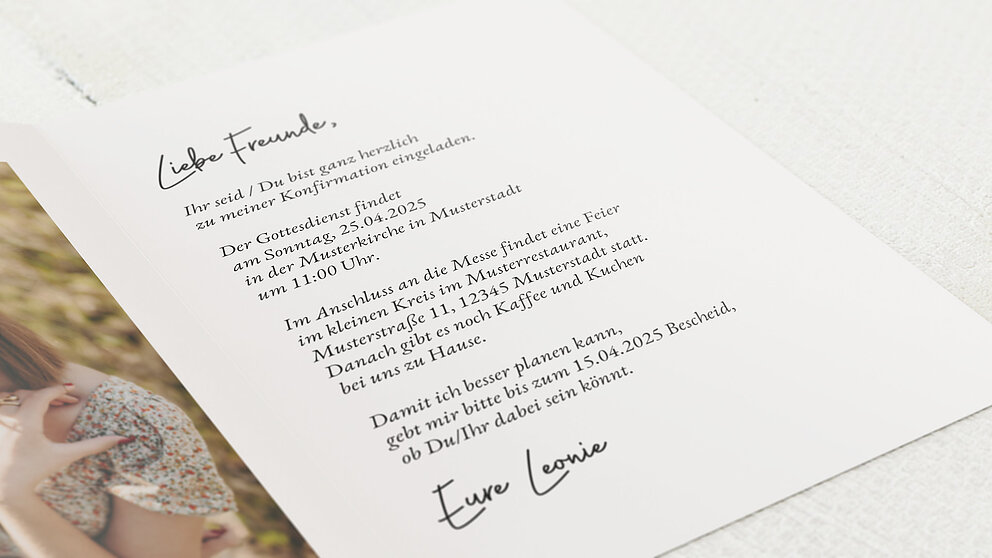 Liebe Freunde,
Ihr seid / Du bist ganz herzlich
zu meiner Konfirmation eingeladen.
Der Gottesdienst findet
am Sonntag, 25.04.2025
in der Musterkirche in Musterstadt
um 11:00 Uhr.
Im Anschluss an die Messe findet eine Feier
im kleinen Kreis im Musterrestaurant,
Musterstraße 11, 12345 Musterstadt statt.
Danach gibt es noch Kaffee und Kuchen
bei uns zu Hause.
Damit ich besser planen kann,
gebt mir bitte bis zum 15.04.2025 Bescheid,
ob Du/Ihr dabei sein könnt.
Eure Leonie